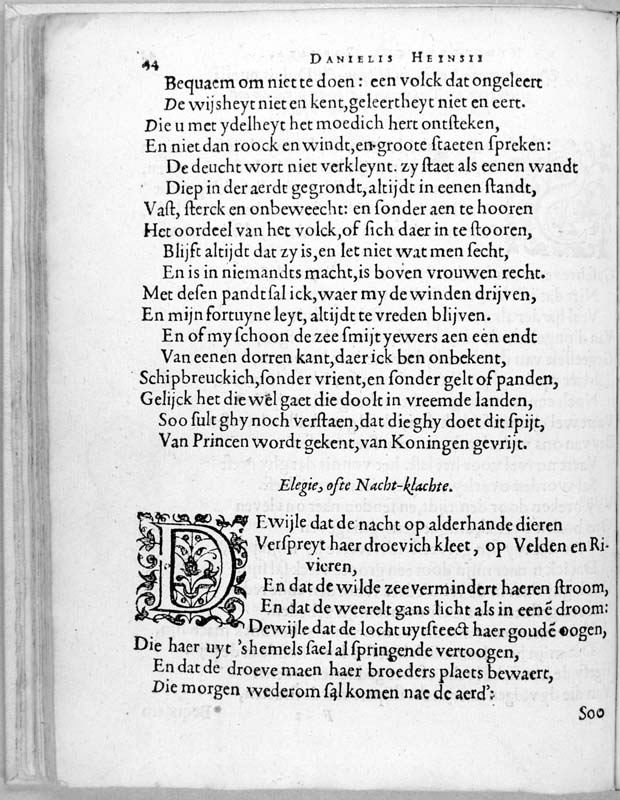 44 DANIELIS HEINSII
Bequaem om niet te doen: een volck dat ongeleert
De wijsheyt niet en kent, geleertheyt niet en eert.
Die u met ydelheyt het moedich hert ontsteken,
En niet dan roock en windt, en groote staeten spreken:
De deucht wort niet verkleynt. zy staet als eenen wandt
Diep in der aerdt gegrondt, altijdt in eenen standt,
Vast, sterck en onbeweecht: en sonder aen te hooren
Het oordeel van het volck, of sich daer in te stooren,
Blijft altijdt dat zy is, en let niet wat men secht,
En is in niemandts macht, is boven vrouwen recht.
Met desen pandt sal ick, waer my de winden drijven,
En mijn fortuyne leyt, altijdt te vreden blijven.
En of my schoon de zee smijt yewers aen een endt
Van eenen dorren kant, daer ick ben onbekent,
Schipbreuckich, sonder vrient, en sonder gelt of panden,
Gelijck het die wel gaet die doolt in vreemde landen,
Soo sult ghy noch verstaen, dat die ghy doet dit spijt,
Van Princen wordt gekent, van Koningen gevrijt.
Elegie, ofte Nacht-klachte.
DEwijle dat de nacht op alderhande dieren
Verspreyt haer droevich kleet, op Velden en Ri-
vieren,
En dat de wilde zee vermindert haeren stroom,
En dat de weerelt gans licht als in eenẽ droom:
Dewijle dat de locht uytsteect haer goudẽ oogen,
Die haer uyt 'shemels sael al springende vertoogen,
En dat de droeve maen haer broeders plaets bewaert,
Die morgen wederom sal komen nae de aerd':
Soo